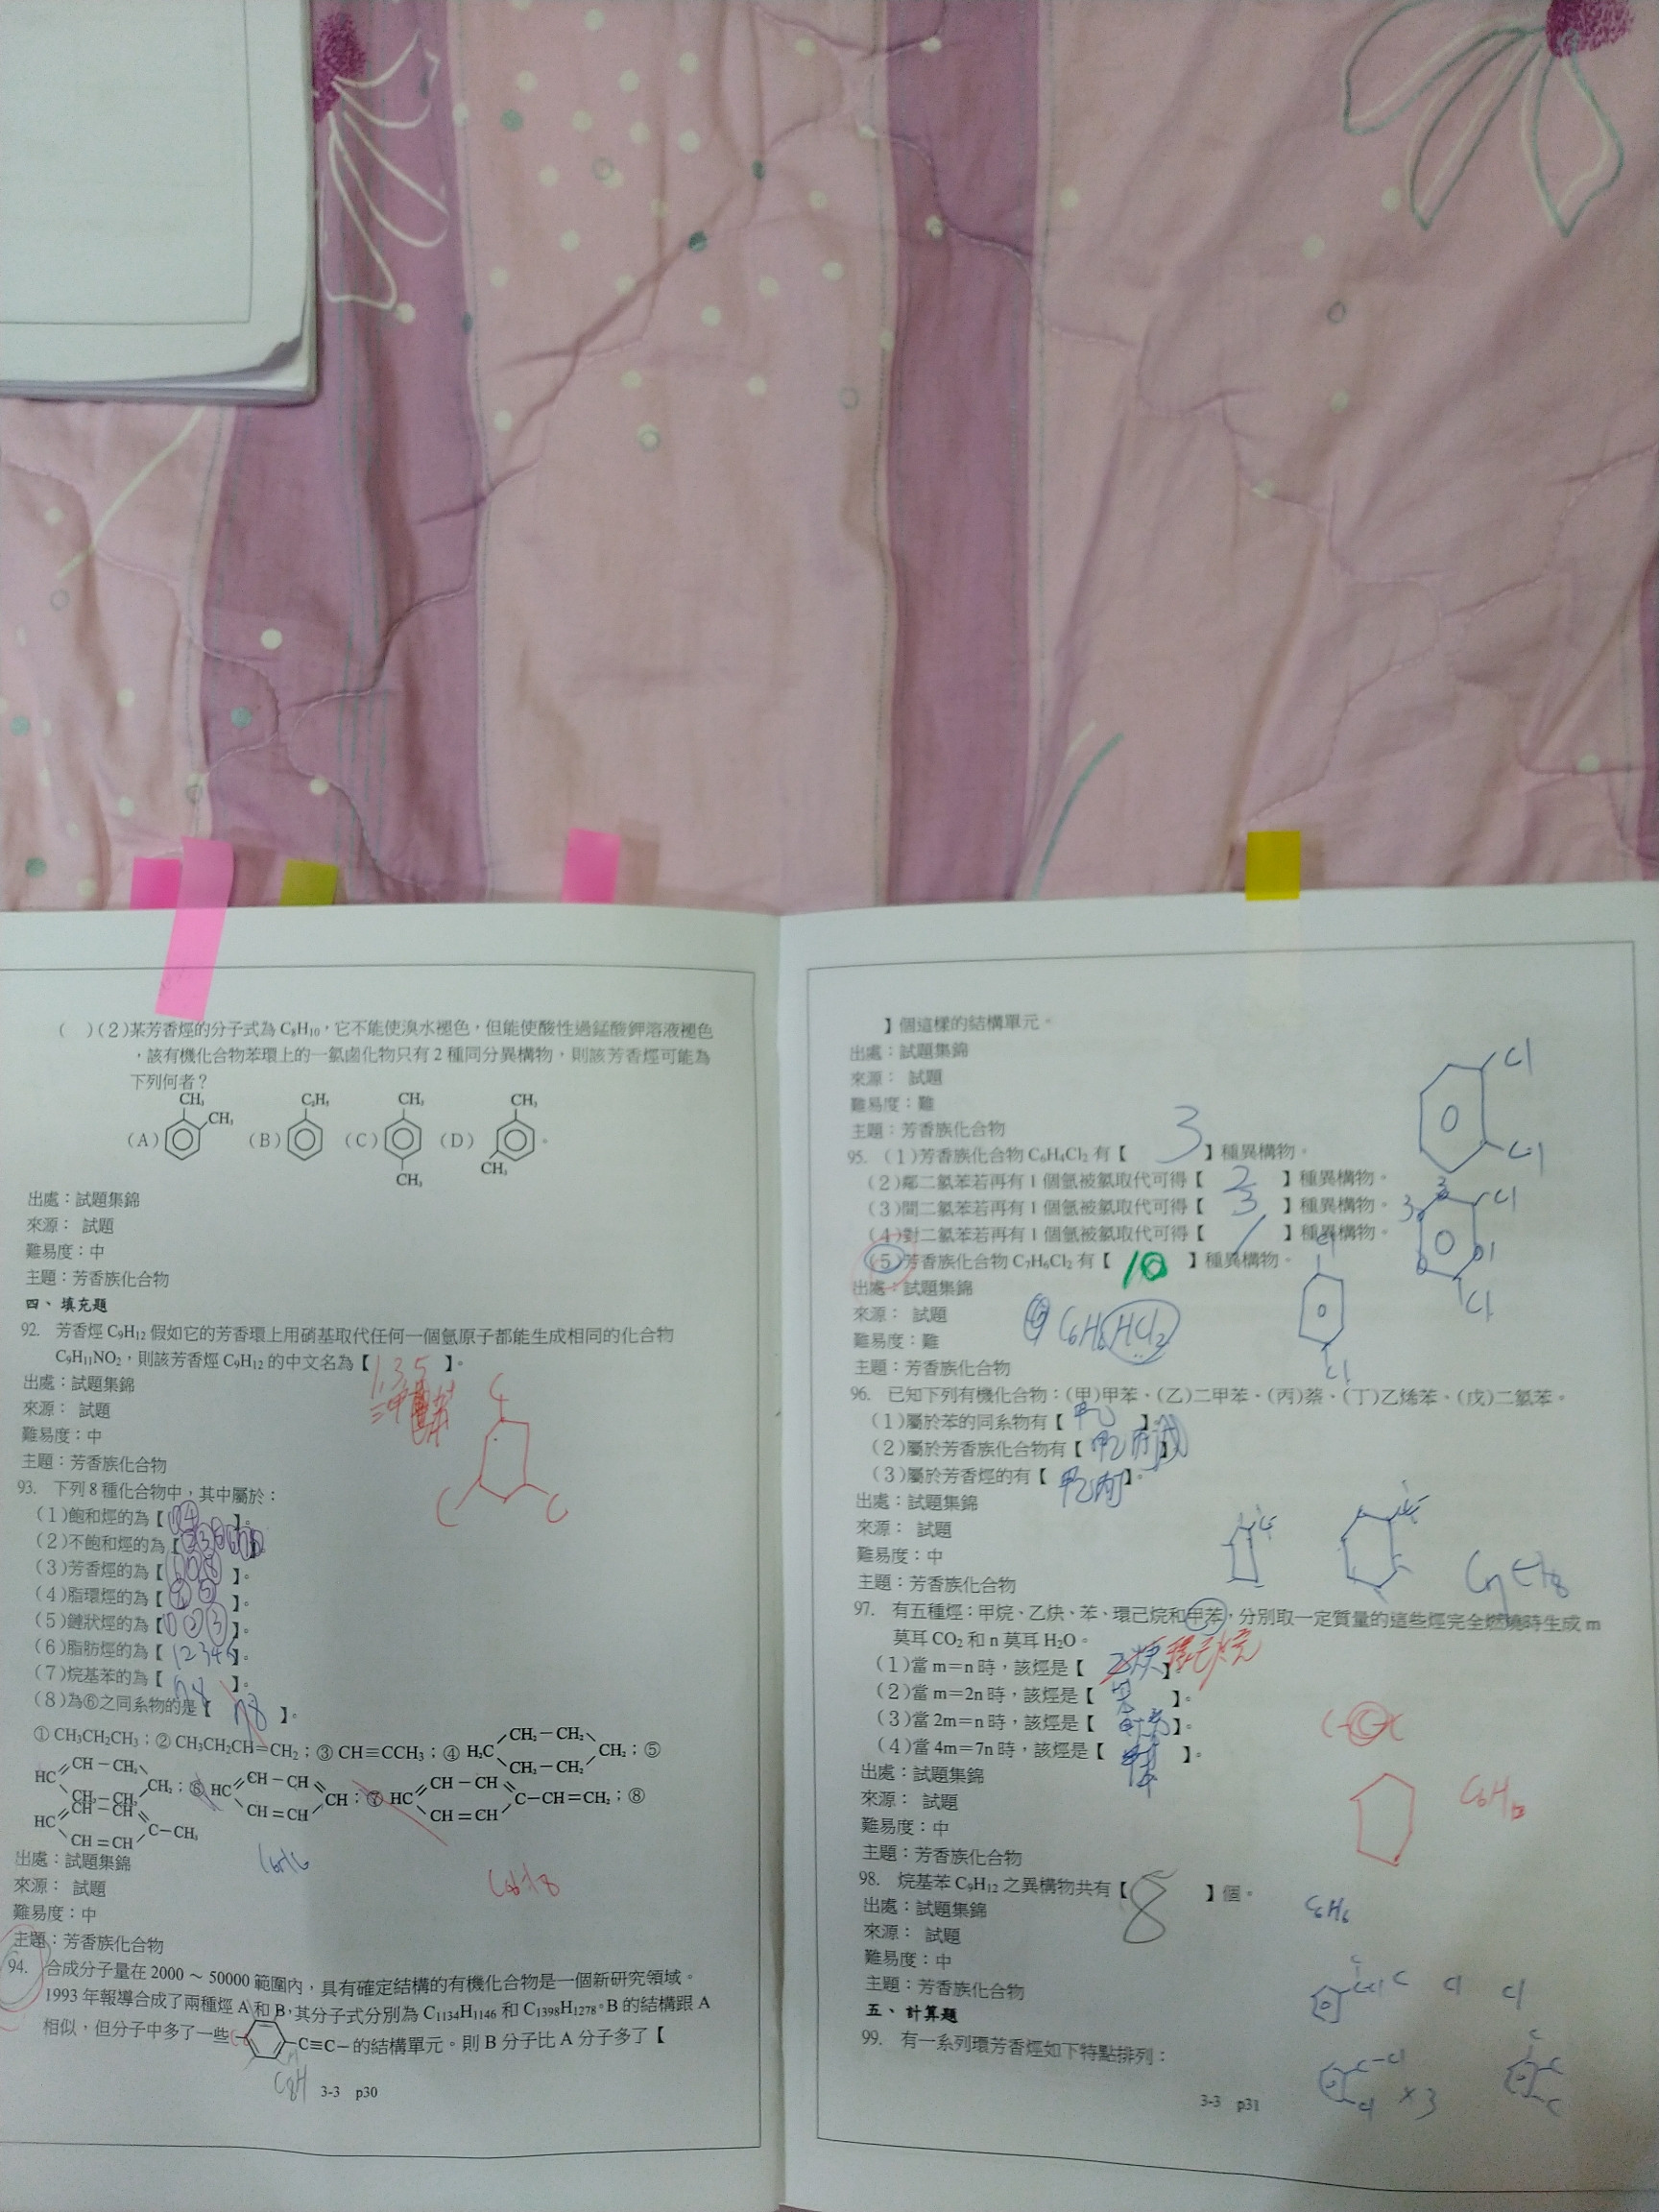 （　）(２)某芳香烴的分子式為 C₈H₁₀，它不能使溴水褪色，但能使酸性過錳酸鉀溶液褪色
，該有機化合物苯環上的一氯鹵化物只有 2 種同分異構物，則該芳香烴可能為
下列何者？
(A) CH₃ CH₃ (B) C₂H₅ (C) CH₃ CH₃ (D) CH₃ CH₃ 。
出處：試題集錦
來源： 試題
難易度：中
主題：芳香族化合物
四、填充題
92. 芳香烴 C₉H₁₂ 假如它的芳香環上用硝基取代任何一個氫原子都能生成相同的化合物
C₉H₁₁NO₂，則該芳香烴 C₉H₁₂ 的中文名為【1,3,5 三甲苯】。
出處：試題集錦
來源： 試題
難易度：中
主題：芳香族化合物
93. 下列 8 種化合物中，其中屬於：
(１)飽和烴的為【①④】。
(２)不飽和烴的為【】。
(３)芳香烴的為【】。
(４)脂環烴的為【④⑤】。
(５)鏈狀烴的為【①②③】。
(６)脂肪烴的為【】。
(７)烷基苯的為【】。
(８)為⑥之同系物的是【】。
① CH₃CH₂CH₃；② CH₃CH₂CH=CH₂；③ CH≡CCH₃；④ H₂C CH₂－CH₂ CH₂－CH₂ CH₂；⑤
HC CH－CH₂ CH₂－CH₂ CH₂；⑥ HC CH－CH CH=CH CH；⑦ HC CH－CH CH=CH C－CH=CH₂；⑧
HC CH－CH CH=CH C－CH₃
出處：試題集錦
C₆H₆
C₈H₈
來源： 試題
難易度：中
主題：芳香族化合物
94. 合成分子量在 2000～50000 範圍內，具有確定結構的有機化合物是一個新研究領域。
1993 年報導合成了兩種烴 A 和 B，其分子式分別為 C₁₁₃₄H₁₁₄₆ 和 C₁₃₉₈H₁₂₇₈。B 的結構跟 A
相似，但分子中多了一些 －C≡C－ 的結構單元。則 B 分子比 A 分子多了【
C₈H
3-3 p30
】個這樣的結構單元。
出處：試題集錦
來源： 試題
難易度：難
主題：芳香族化合物
95. (１)芳香族化合物 C₆H₄Cl₂ 有【3】種異構物。
(２)鄰二氯苯若再有 1 個氫被氯取代可得【2】種異構物。
(３)間二氯苯若再有 1 個氫被氯取代可得【3】種異構物。
(４)對二氯苯若再有 1 個氫被氯取代可得【1】種異構物。
(５)芳香族化合物 C₇H₆Cl₂ 有【10】種異構物。
Cl Cl
Cl Cl
Cl Cl
出處：試題集錦
來源： 試題
難易度：難
主題：芳香族化合物
96. 已知下列有機化合物：(甲)甲苯、(乙)二甲苯、(丙)萘、(丁)乙烯苯、(戊)二氯苯。
(１)屬於苯的同系物有【甲乙】。
(２)屬於芳香族化合物有【】。
(３)屬於芳香烴的有【】。
出處：試題集錦
來源： 試題
難易度：中
主題：芳香族化合物
97. 有五種烴：甲烷、乙炔、苯、環己烷和甲苯，分別取一定質量的這些烴完全燃燒時生成 m
莫耳 CO₂ 和 n 莫耳 H₂O。
(１)當 m＝n 時，該烴是【乙炔】。環己烷
(２)當 m＝2n 時，該烴是【】。
(３)當 2m＝n 時，該烴是【】。
(４)當 4m＝7n 時，該烴是【】。
出處：試題集錦
來源： 試題
難易度：中
主題：芳香族化合物
98. 烷基苯 C₉H₁₂ 之異構物共有【8】個。
C₆H₆
出處：試題集錦
來源： 試題
難易度：中
主題：芳香族化合物
五、計算題
99. 有一系列環芳香烴如下特點排列：
3-3 p31